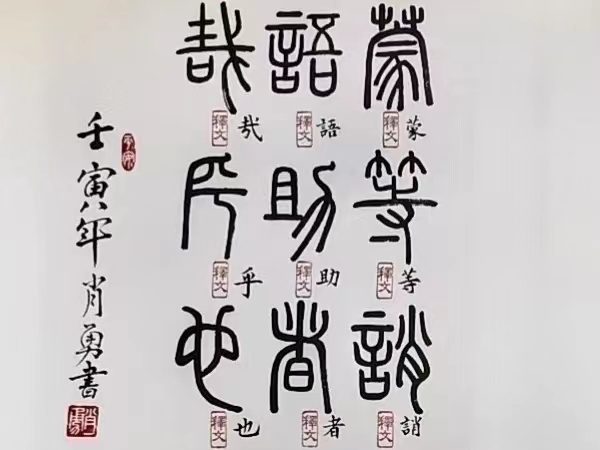 蒙等誚
釋文 蒙
釋文 等
釋文 誚
語助者
釋文 語
釋文 助
釋文 者
哉乎也
釋文 哉
釋文 乎
釋文 也
壬寅年肖勇書
肖勇